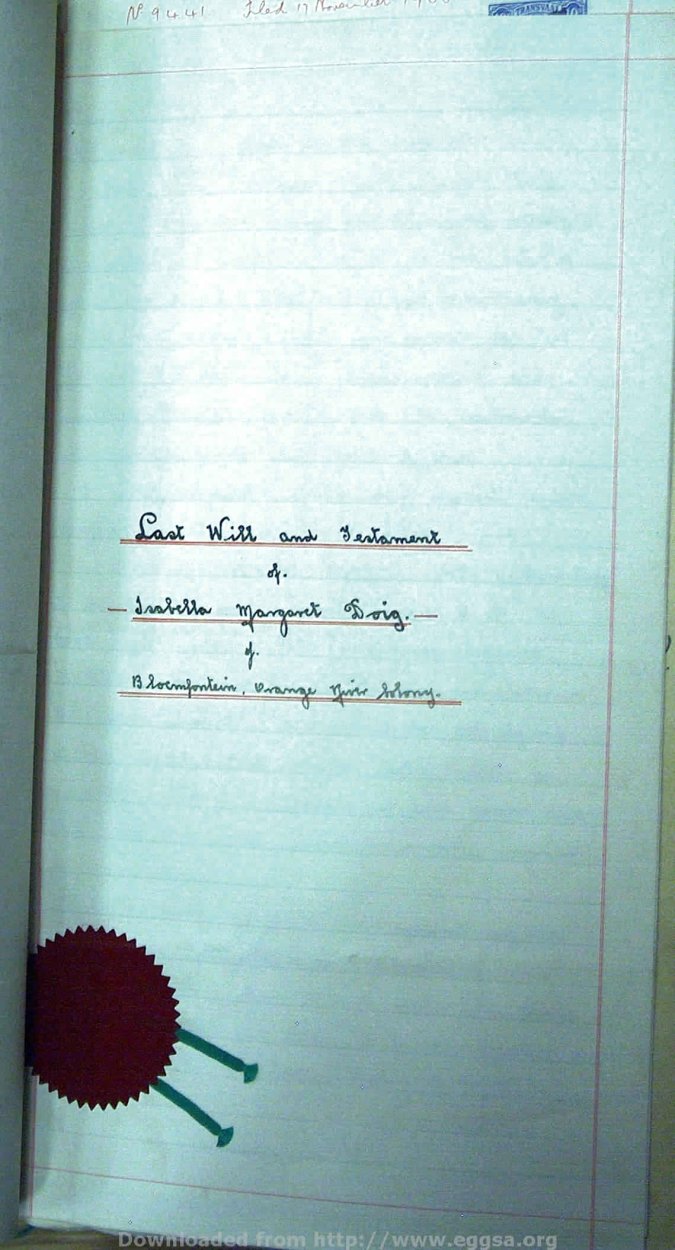 No 9441. Filed 17 November
TRANSVAAL
Last Will and Testament
of.
— Isabella Margaret Doig. —
of.
Bloemfontein, Orange River Colony.
Downloaded from http://www.eggsa.org